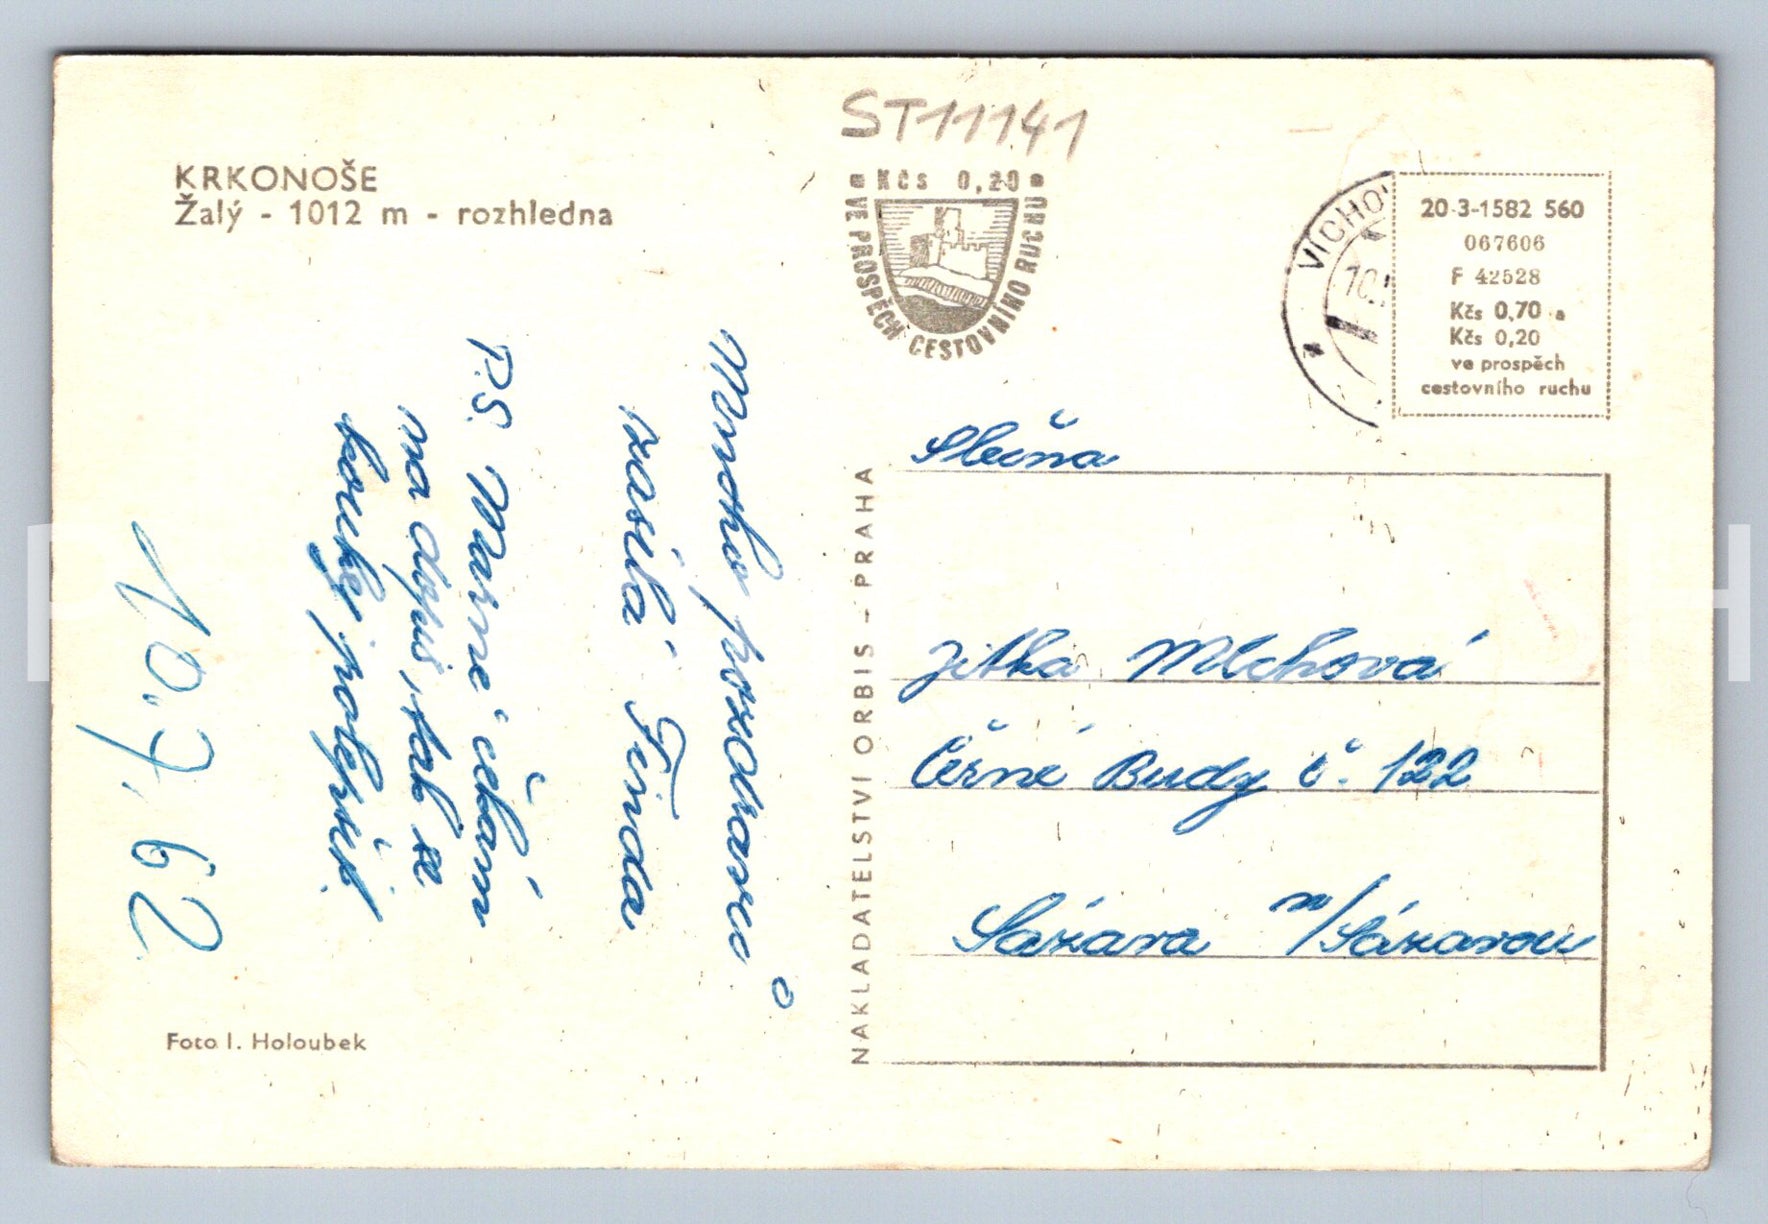 ST11141
KRKONOŠE
Žalý - 1012 m - rozhledna
Kčs 0,20
VE PROSPĚCH CESTOVNÍHO RUCHU
VÍCHO
10.
20-3-1582 560
067606
F 42528
Kčs 0,70 a
Kčs 0,20
ve prospěch
cestovního ruchu
Mnoho pozdravů
zasílá
P.S. Marně čekám
na dopis, tak se
koukej polepšit.
10.7.62
Foto I. Holoubek
NAKLADATELSTVÍ ORBIS - PRAHA
Slečna
Jitka Mlchová
Černé Budy č. 122
Sázava n/Sázavou